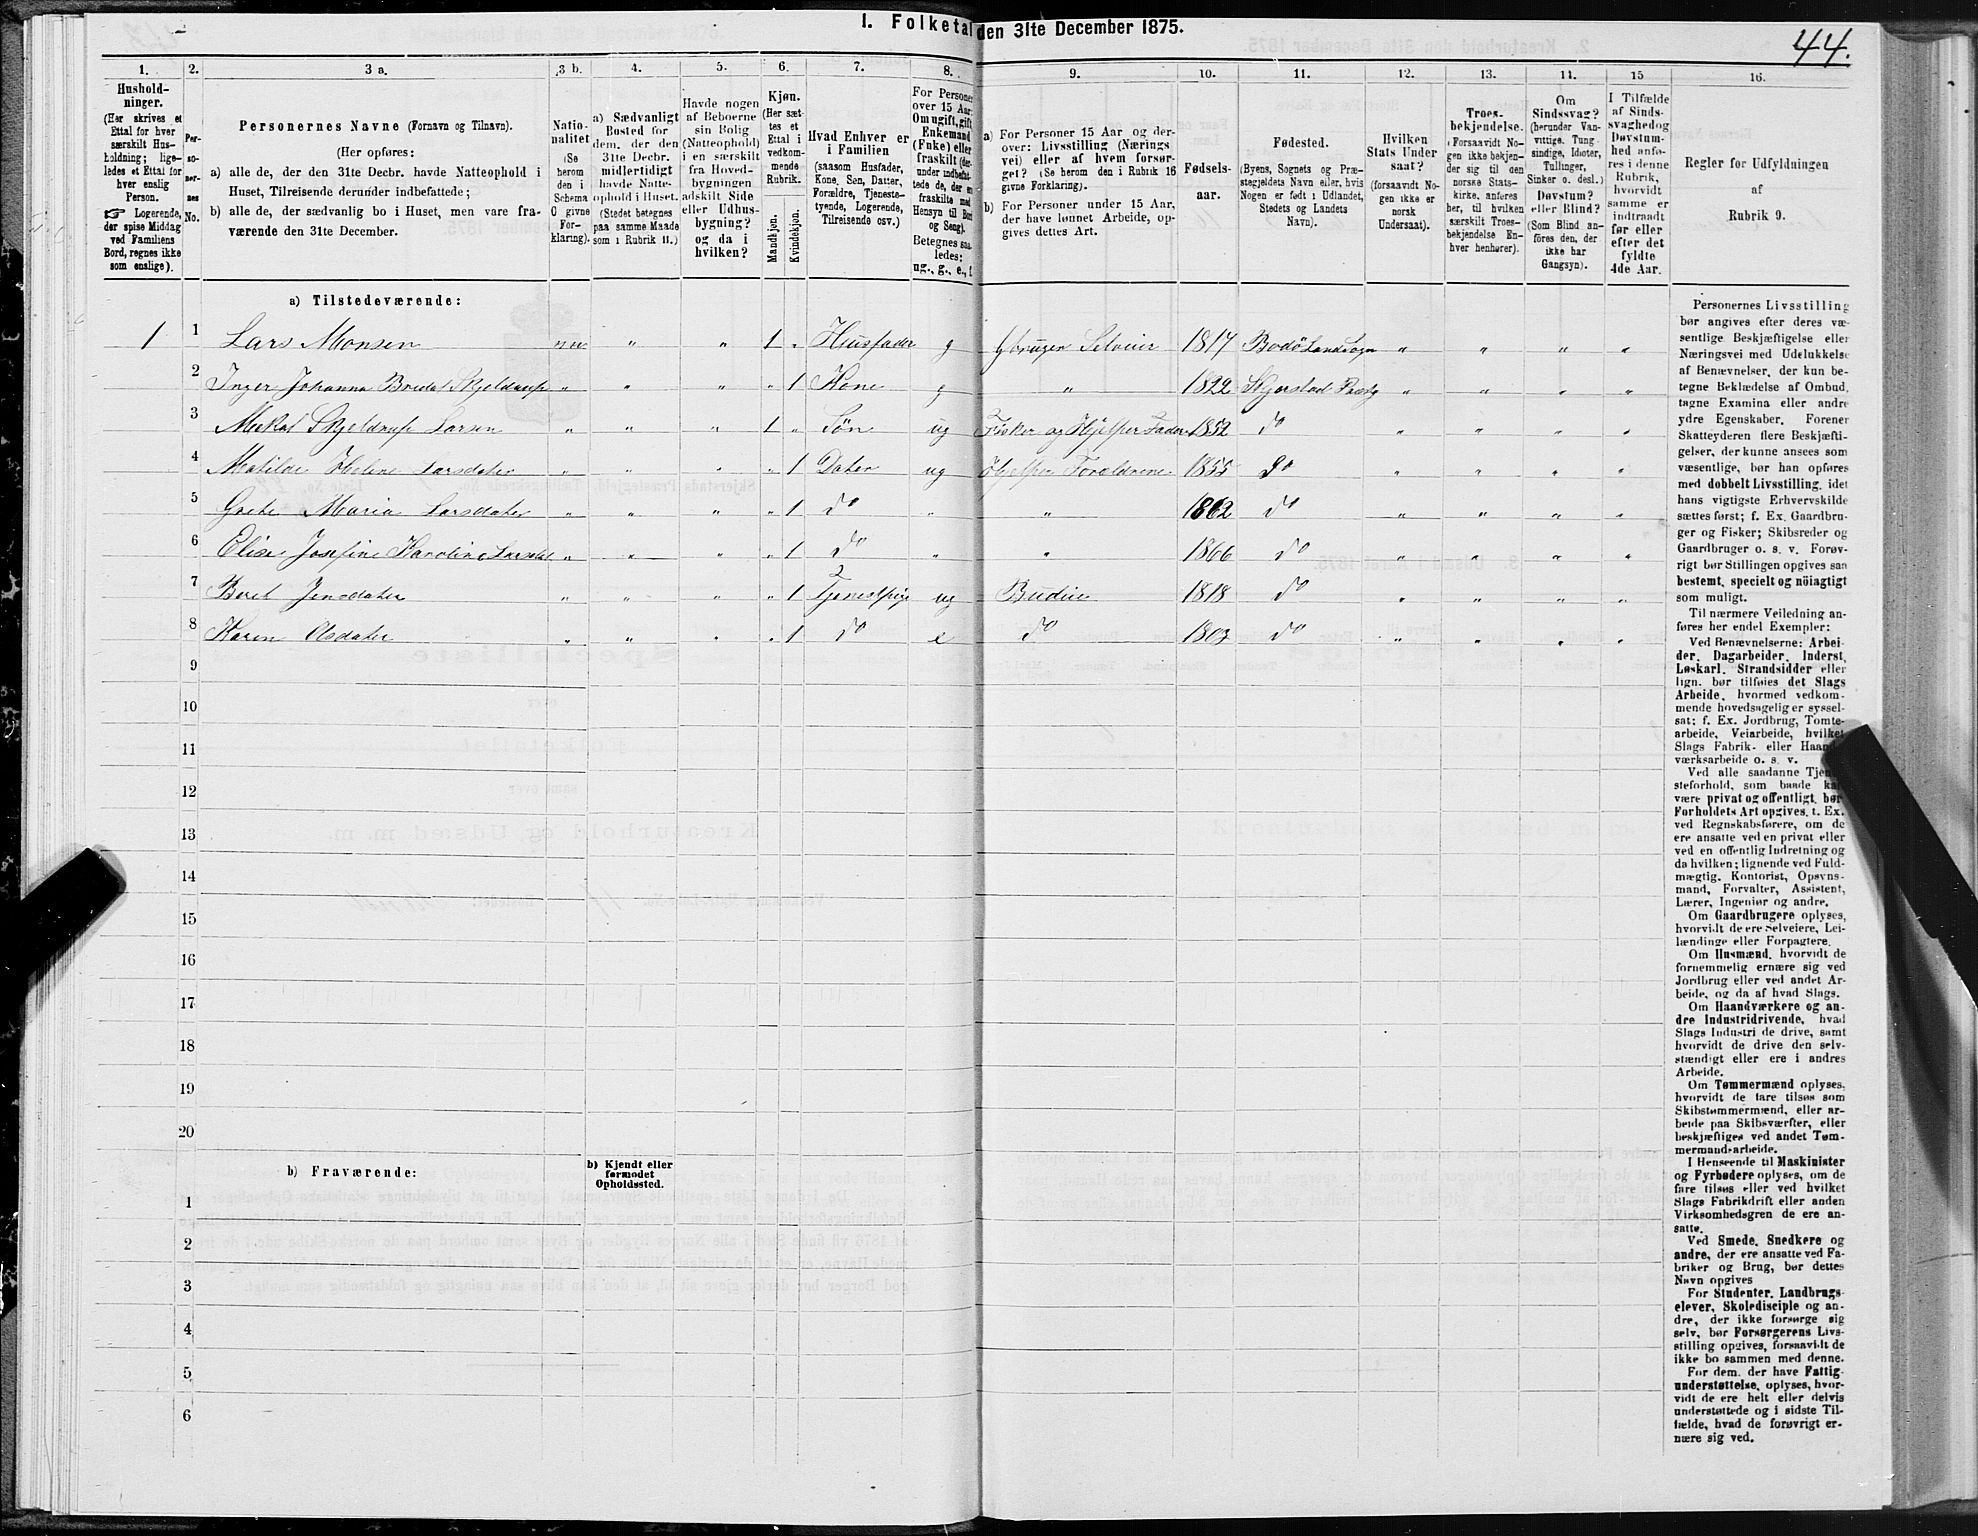 1. Folketal den 31te December 1875.
44.
1.
Hushold-
ninger.
(Her skrives et
Ettal for hver
særskilt Hus-
holdning; lige-
ledes et Ettal for
hver enslig
Person.
☞ Logerende,
der spise Middag
ved Familiens
Bord, regnes ikke
som enslige).
2.
Per-
so-
ner-
nes
No.
3 a.
Personernes Navne (Fornavn og Tilnavn).
(Her opføres:
a) alle de, der den 31te Decbr. havde Natteophold i
Huset, Tilreisende derunder indbefattede;
b) alle de, der sædvanlig bo i Huset, men vare fra-
værende den 31te December.
3 b.
Natio-
nalitet
(Se
herom
den i
Schema
O givne
For-
klaring).
4.
a) Sædvanligt
Bosted for
dem, der den
31te Decbr.
midlertidigt
havde Natte-
ophold i Huset.
(Stedet betegnes
paa samme Maade
som i Rubrik 11.)
5.
Havde nogen
af Beboerne
sin Bolig
(Natteophold)
i en særskilt
fra Hoved-
bygningen
adskilt Side
eller Udhus-
bygning?
og da i
hvilken?
6.
Kjøn.
(Her sæt-
tes et
Ettal i
vedkom-
mende
Rubrik.
Mandkjøn.
Kvindekjøn.
7.
Hvad Enhver er
i Familien
(saasom Husfader,
Kone, Søn, Datter,
Forældre, Tjeneste-
tyende, Logerende,
Tilreisende osv.)
8.
For Personer
over 15 Aar:
Om ugift, gift,
Enkemand
(Enke) eller
fraskilt (der-
under indbefat-
tede de, der ere
fraskilte med
Hensyn til Bord
og Seng).
Betegnes saa-
ledes:
ug., g., e., f.
9.
a) For Personer 15 Aar og der-
over: Livsstilling (Nærings-
vei) eller af hvem forsør-
get? (Se herom den i Rubrik 16
givne Forklaring).
b) For Personer under 15 Aar,
der have lønnet Arbeide, op-
gives dettes Art.
10.
Fødsels-
aar.
11.
Fødested.
(Byens, Sognets og Præ-
stegjeldets Navn eller, hvis
Nogen er født i Udlandet,
Stedets og Landets
Navn).
12.
Hvilken
Stats Under-
saat?
(forsaavidt No-
gen ikke er
norsk
Undersaat).
13.
Troes-
bekjendelse.
(Forsaavidt No-
gen ikke bekjen-
der sig til den
norske Stats-
kirke, anføres
her, til hvilken
særskilt Troes-
bekjendelse En-
hver henhører).
14.
Om
Sindssvag?
(herunder Van-
vittige, Tung-
sindige, Idioter,
Tullinger,
Sinker o. desl.)
Døvstum?
eller Blind?
(Som Blind an-
føres den, der
ikke har
Gangsyn).
15
I Tilfælde
af Sinds-
svaghed og
Døvstum-
hed anfø-
res i denne
Rubrik,
hvorvidt
samme er
indtraadt
før eller
efter det
fyldte
4de Aar.
16.
Regler for Udfyldningen
af
Rubrik 9.
a) Tilstedeværende:
1 1 Lars Monsen nu " " 1 " Husfader g Gbruger Selveier 1817 Bodø Landsogn " " " "
2 Inger Johanna Bredal Skjeldrup " " " " 1 Kone g " 1822 Skjerstad Præstg " " " "
3 Mikal Skjeldrup Larsen " " " 1 " Søn ug Fisker og Hjelper Fader 1852 do " " " "
4 Matilde Heline Larsdater " " " " 1 Dater ug Hjelper Forældrene 1855 do " " " "
5 Grete Maria Larsdater " " " " 1 do " " 1862 do " " " "
6 Elise Josefine Karoline Larsdat " " " " 1 do " " 1866 do " " " "
7 Beret Jensdater " " " " 1 Tjenestpige ug Budeie 1818 do " " " "
8 Karen Olsdater " " " " 1 do e do 1807 do " " " "
9
10
11
12
13
14
15
16
17
18
19
20
b) Fraværende:
b) Kjendt eller
formodet
Opholdssted.
1
2
3
4
5
6
Personernes Livsstilling
bør angives efter deres væ-
sentlige Beskjæftigelse eller
Næringsvei med Udelukkelse
af Benævnelser, der kun be-
tegne Beklædelse af Ombud,
tagne Examina eller andre
ydre Egenskaber. Forener
Skatteyderen flere Beskjæfti-
gelser, der kunne ansees som
væsentlige, bør han opføres
med dobbelt Livsstilling, idet
hans vigtigste Erhvervskilde
sættes først; f. Ex. Gaardbru-
ger og Fisker; Skibsreder og
Gaardbruger o. s. v. Forøv-
rigt bør Stillingen opgives saa
bestemt, specielt og nöiagtigt
som muligt.
Til nærmere Veiledning an-
føres her endel Exempler:
Ved Benævnelserne: Arbei-
der, Dagarbeider, Inderst,
Løskarl, Strandsidder eller
lign. bør tilføies det Slags
Arbeide, hvormed vedkom-
mende hovedsagelig er syssel-
sat; f. Ex. Jordbrug, Tomte-
arbeide, Veiarbeide, hvilket
Slags Fabrik- eller Haand-
værksarbeide o. s. v.
Ved alle saadanne Tjene-
steforhold, som baade kan
være privat og offentligt, bør
Forholdets Art opgives, t. Ex.
ved Regnskabsførere, om de
ere ansatte ved en privat eller
ved en offentlig Indretning og
da hvilken; lignende ved Fuld-
mægtig, Kontorist, Opsyns-
mand, Forvalter, Assistent,
Lærer, Ingeniør og andre.
Om Gaardbrugere oplyses,
hvorvidt de ere Selveiere, Lei-
lændinge eller Forpagtere.
Om Husmænd, hvorvidt de
fornemmelig ernære sig ved
Jordbrug eller ved andet Ar-
beide, og da af hvad Slags.
Om Haandværkere og an-
dre Industridrivende, hvad
Slags Industri de drive, samt
hvorvidt de drive den selv-
stændigt eller ere i andres
Arbeide.
Om Tømmermænd oplyses,
hvorvidt de fare tilsøs som
Skibstømmermænd, eller ar-
beide paa Skibsværfter, eller
beskjæftiges ved andet Tøm-
mermandsarbeide.
I Henseende til Maskinister
og Fyrbødere oplyses, om de
fare tilsøs eller ved hvilket
Slags Fabrikdrift eller anden
Virksomhedsgren de ere an-
satte.
Ved Smede, Snedkere og
andre, der ere ansatte ved Fa-
briker og Brug, bør dettes
Navn opgives
For Studenter, Landbrugs-
elever, Skoledisciple og an-
dre, der ikke forsørge sig
selv, bør Forsørgerens Livs-
stilling opgives, forsaavidt de
ikke bo sammen med denne.
For dem, der have Fattig-
understøttelse, oplyses, hvor-
vidt de ere helt eller delvis
understøttede og i sidste Til-
fælde, hvad de forøvrigt er-
nære sig ved.